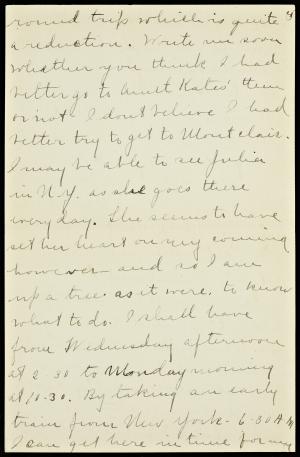 round trip which is quite
a reduction. Write me soon
whether you think I had
better go to Aunt Kates' then
or not. I don't believe I had
better try to get to Montclair.
I may be able to see Julia
in N.Y. as she goes there
everyday. She seems to have
set her heart on my coming
however and so I am
up a tree as it were, to know
what to do. I shall have
from Wednesday afternoon
at 2 30 to Monday morning
at 10-30. By taking an early
train from New York - 6-30 A.M.
I can get here in time for my